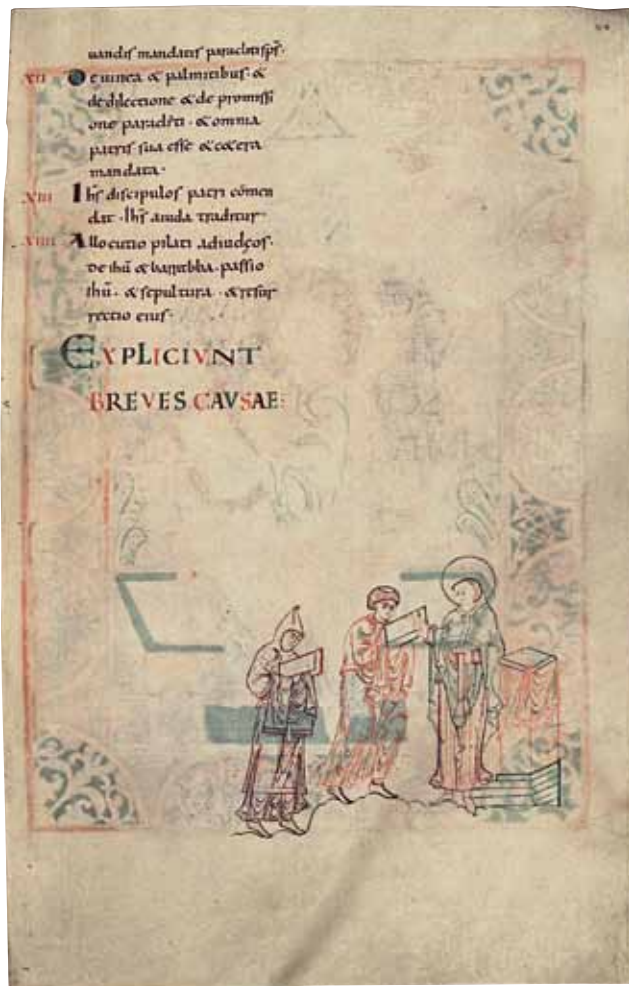 uandis mandatis paracliti sp̅s.
XII De uinea & palmitibus. &
de dilectione & de promissi
one paracliti. & omnia
patris sua esse & cetera
mandata.
XIII Ihs̅ discipulos patri cōmen
dat. Ihs̅ a iuda traditur
XIIII Allocutio pilati ad iudęos.
de ihū & barabba. passio
ihū. & sepultura. & resur
rectio eius.
EXPLICIUNT
BREVES CAVSAE: